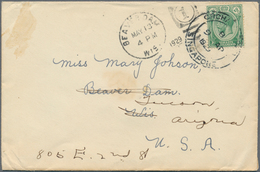 BEAVER DAM
MAY 13
4 PM
WIS.
1929
SINGAPORE
Miss Mary Johnson,
Beaver Dam.
Tucson
Wis.
Arizona
U. S. A.
806 E. 2nd St